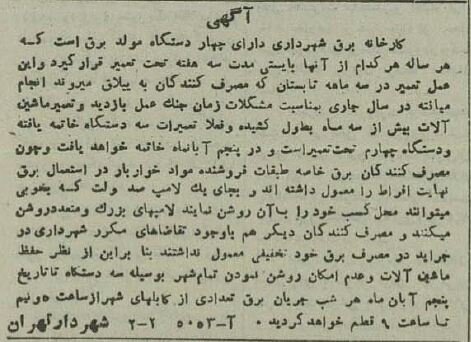 آگهی
کارخانه برق شهرداری دارای چهار دستگاه مولد برق است که
هر ساله هر کدام از آنها بایستی مدت سه هفته تحت تعمیر قرار گیرد و این
عمل تعمیر در سه ماهه تابستان که مصرف کنندگان به ییلاق میروند انجام
میافته در سال جاری بمناسبت مشکلات زمان جنك عمل بازدید و تعمیر ماشین
آلات بیش از سه ماه بطول کشیده و فعلا تعمیرات سه دستگاه خاتمه یافته
و دستگاه چهارم تحت تعمیر است و در پنجم آبانماه خاتمه خواهد یافت و چون
مصرف کنندگان برق خاصه طبقات فروشنده مواد خواربار در استعمال برق
نهایت افراط را معمول داشته اند و بجای یك لامپ صد ولت که بخوبی
میتوانند محل کسب خود را با آن روشن نمایند لامپهای بزرك و متعدد روشن
میکنند و مصرف کنندگان دیگر هم باوجود تقاضاهای مکرر شهرداری در
جراید در مصرف برق خود تخفیفی معمول نداشتند بنا براین از نظر حفظ
ماشین آلات و عدم امکان روشن نمودن تمام شهر بوسیله سه دستگاه تا تاریخ
پنجم آبان ماه هر شب جریان برق تعدادی از کابلهای شهر از ساعت ۵ و نیم
تا ساعت ۹ قطع خواهد گردید . آ-۵۰۵۳ ۲-۲ شهردار تهران